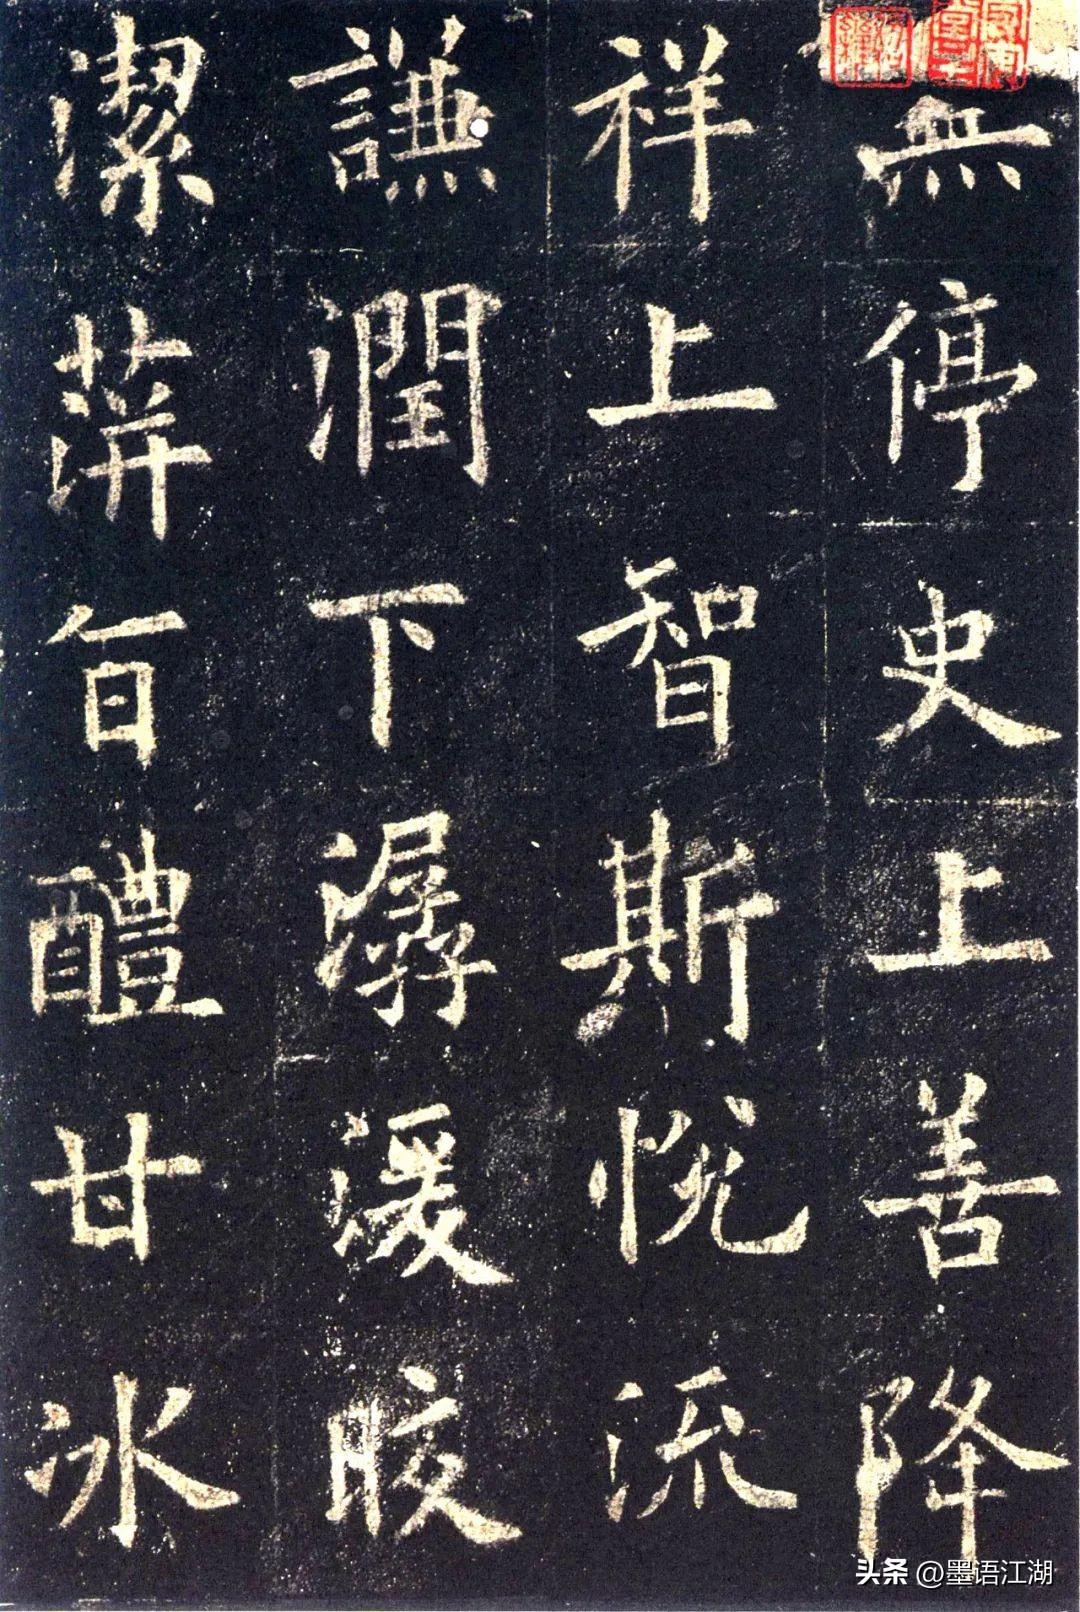 無停史上善降
祥上智斯悅流
謙潤下潺湲晈
潔蓱旨醴甘冰
头条 @墨语江湖